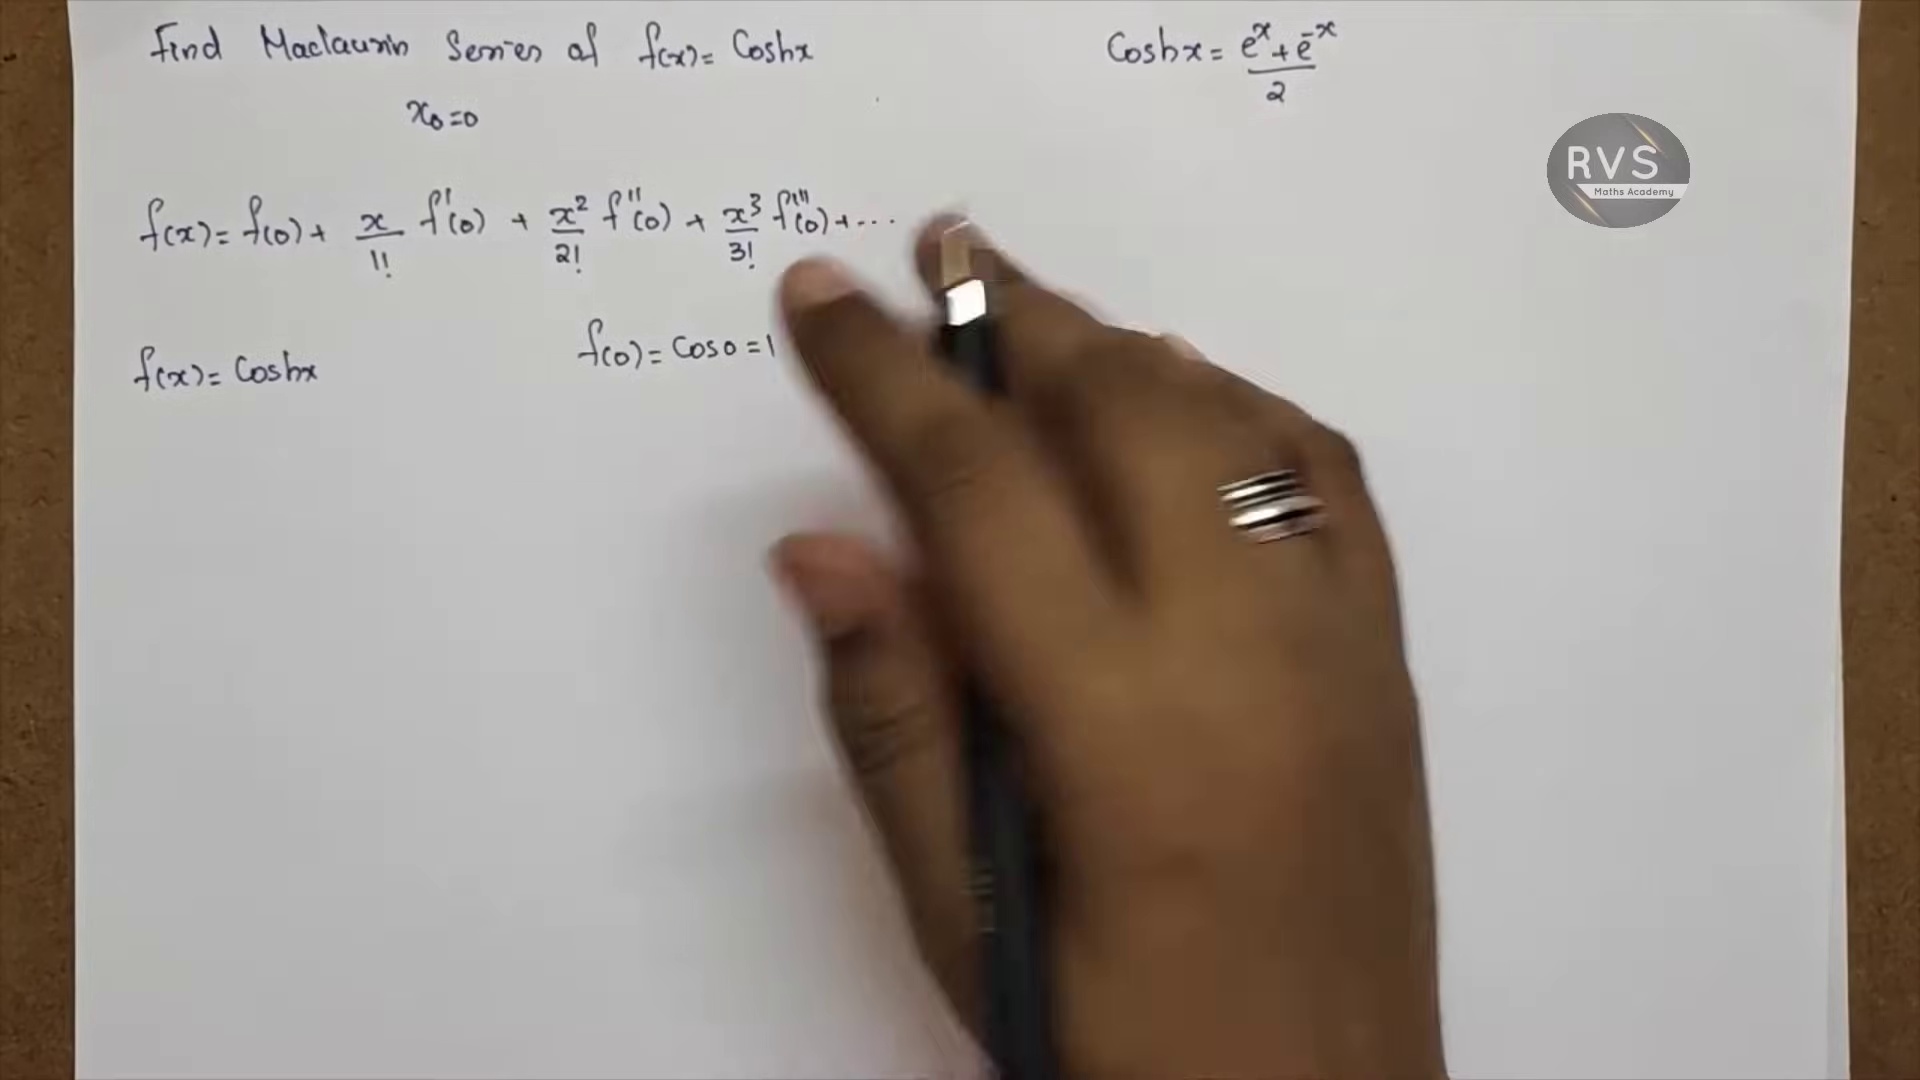 Find Maclaurin Series of f(x)= Coshx
Coshx = e^x + e^-x / 2
x₀=0
RVS
Maths Academy
f(x)= f(0)+ x/1! f'(0) + x²/2! f''(0) + x³/3! f'''(0)+...
f(x)= Coshx
f(0)= Cos0 =1